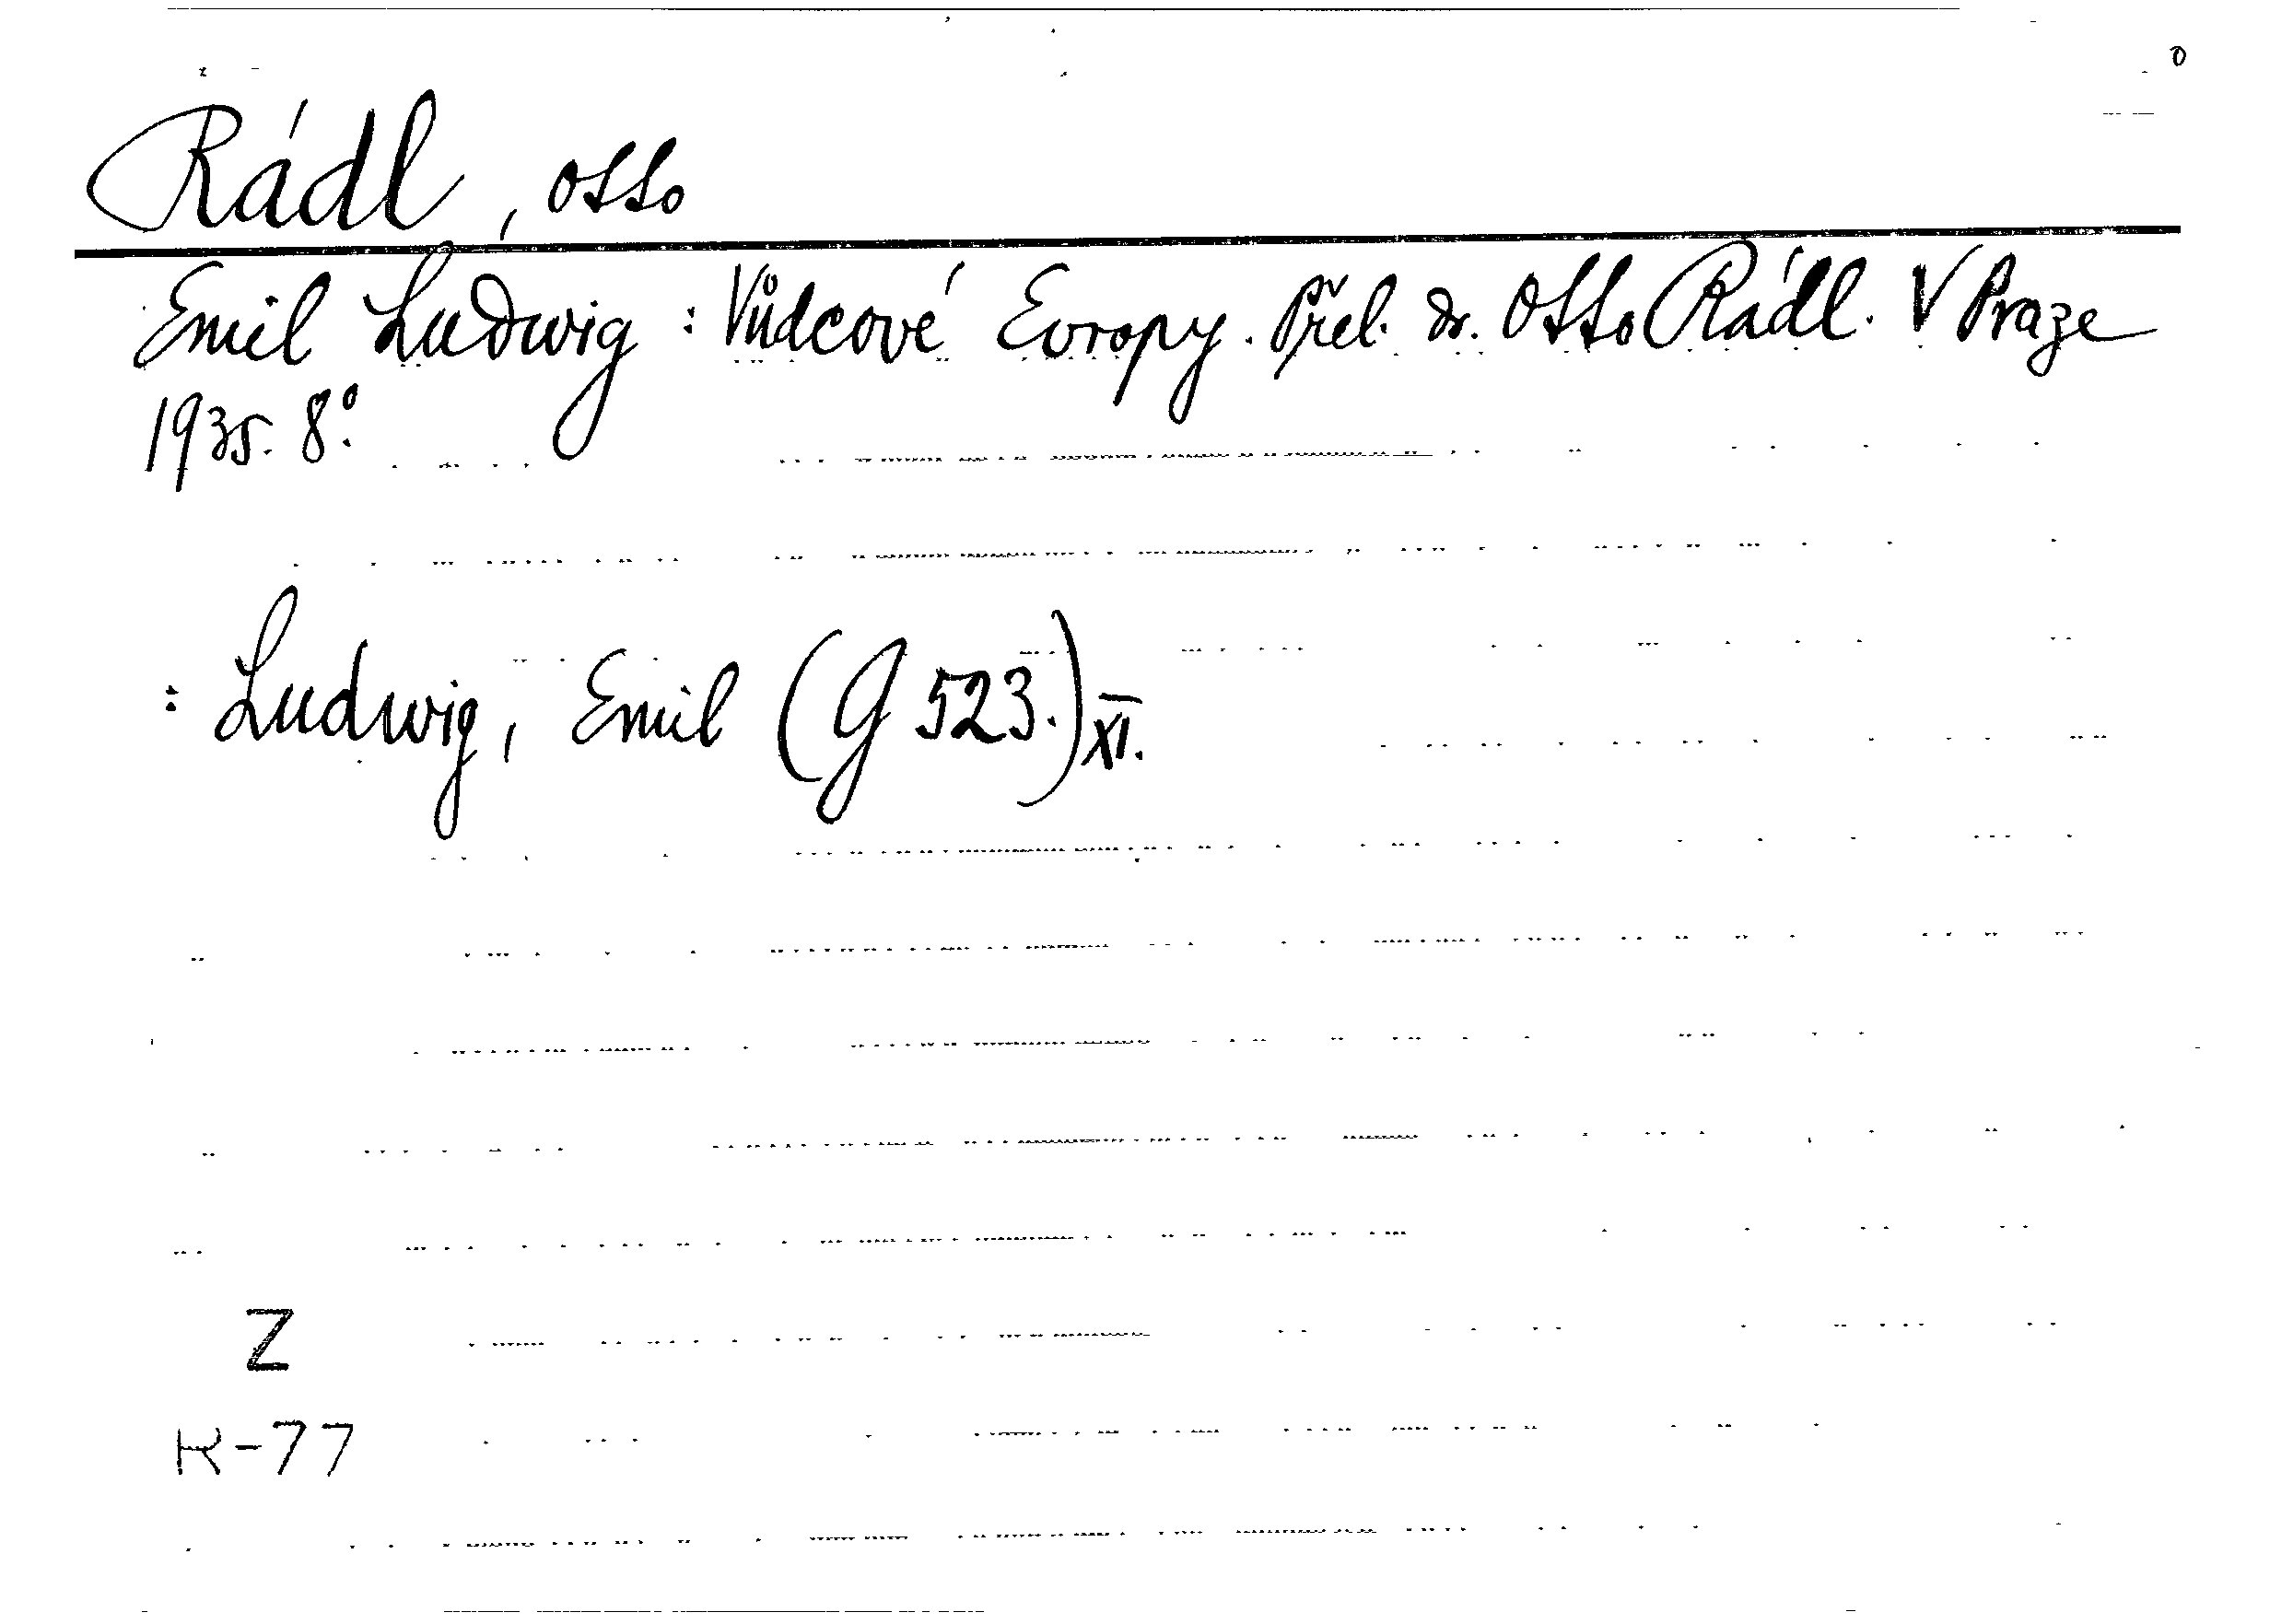 Rádl, Otto
Emil Ludwig: Vůdcové Evropy. Přel. dr. Otto Rádl. V Praze
1935. 8°.
: Ludwig, Emil (G 523.) XI.
Z
K-77